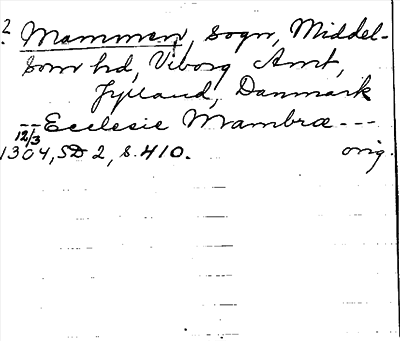 ? Mammen, sogn, Middel-
som hd, Viborg Amt,
Jylland, Danmark
-- Ecclesie Mambræ ---
12/3
1304, SD 2, s. 410. orig.